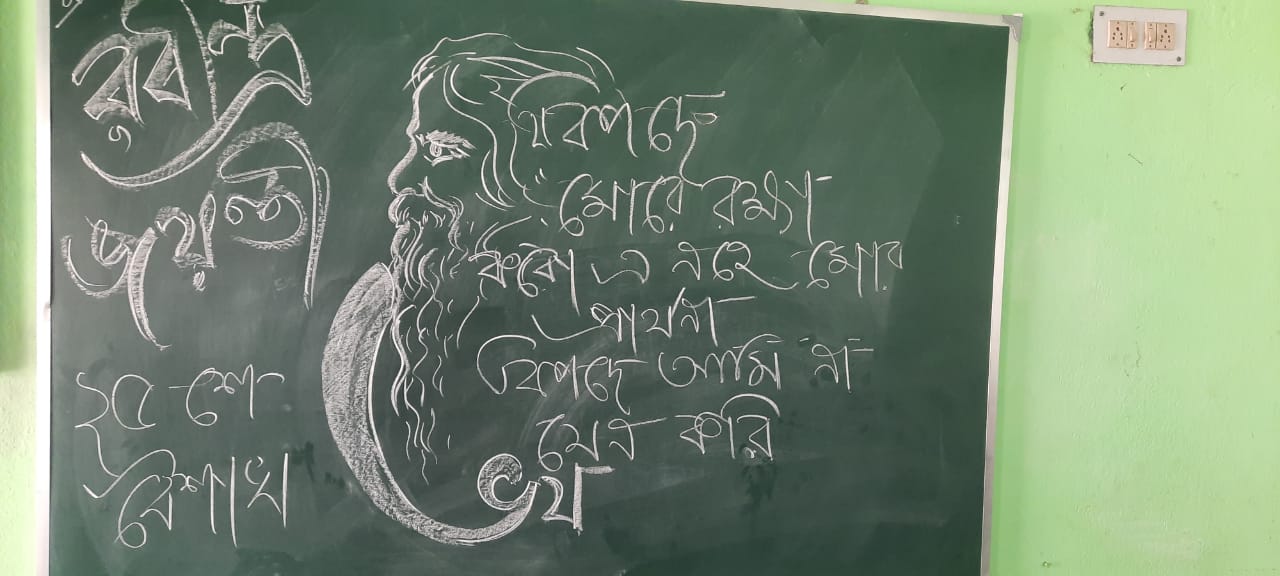 রবীন্দ্র
জয়ন্তী
২৫ শে
বৈশাখ
বিপদে
মোরে রক্ষা
করো এ নহে মোর
প্রার্থনা
বিপদে আমি না
যেন করি
ভয়